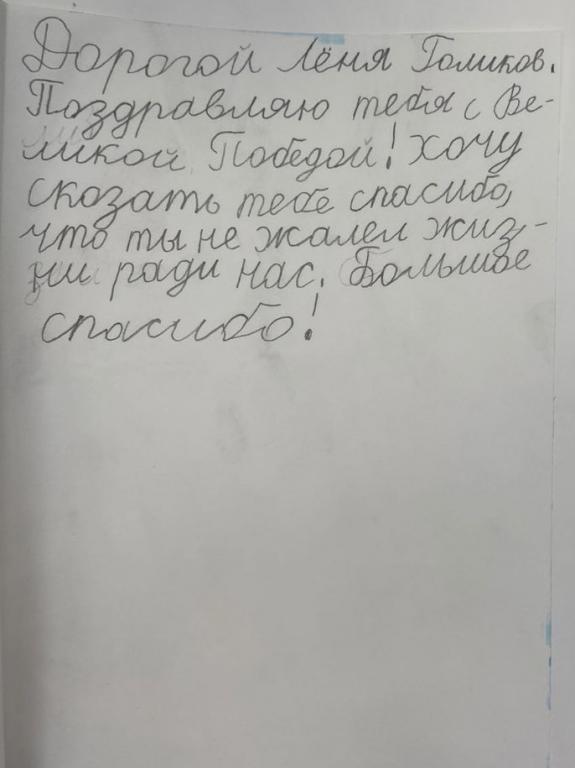 Дорогой Лёня Голиков.
Поздравляю тебя с Ве-
ликой Победой! Хочу
сказать тебе спасибо,
что ты не жалел жиз-
ни ради нас. Большое
спасибо!